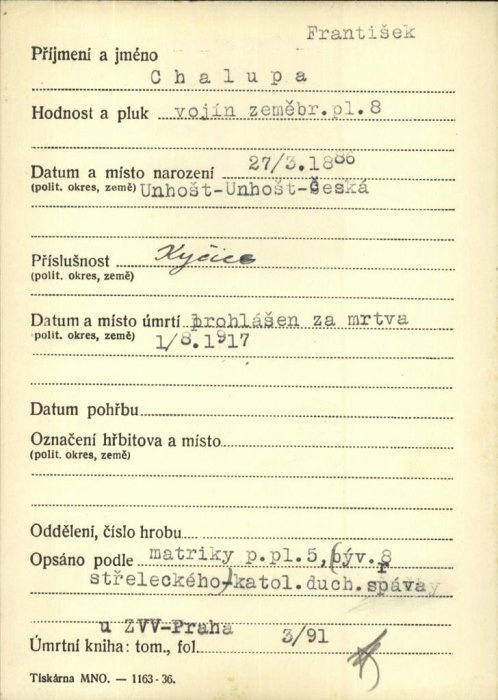 František
Příjmení a jméno
Chalupa
Hodnost a pluk vojín zeměbr.pl.8
Datum a místo narození 27/3.1886
(polit. okres, země) Unhošt-Unhošt-Česká
Příslušnost Kyčice
(polit. okres, země)
Datum a místo úmrtí prohlášen za mrtva
polit. okres, země) 1/8.1917
Datum pohřbu
Označení hřbitova a místo
(polit. okres, země)
Oddělení, číslo hrobu
Opsáno podle matriky p.pl.5,(býv.8
střeleckého)katol.duch.správy
u ZVV-Praha
Úmrtní kniha: tom., fol. 3/91
Tiskárna MNO. — 1163-36.